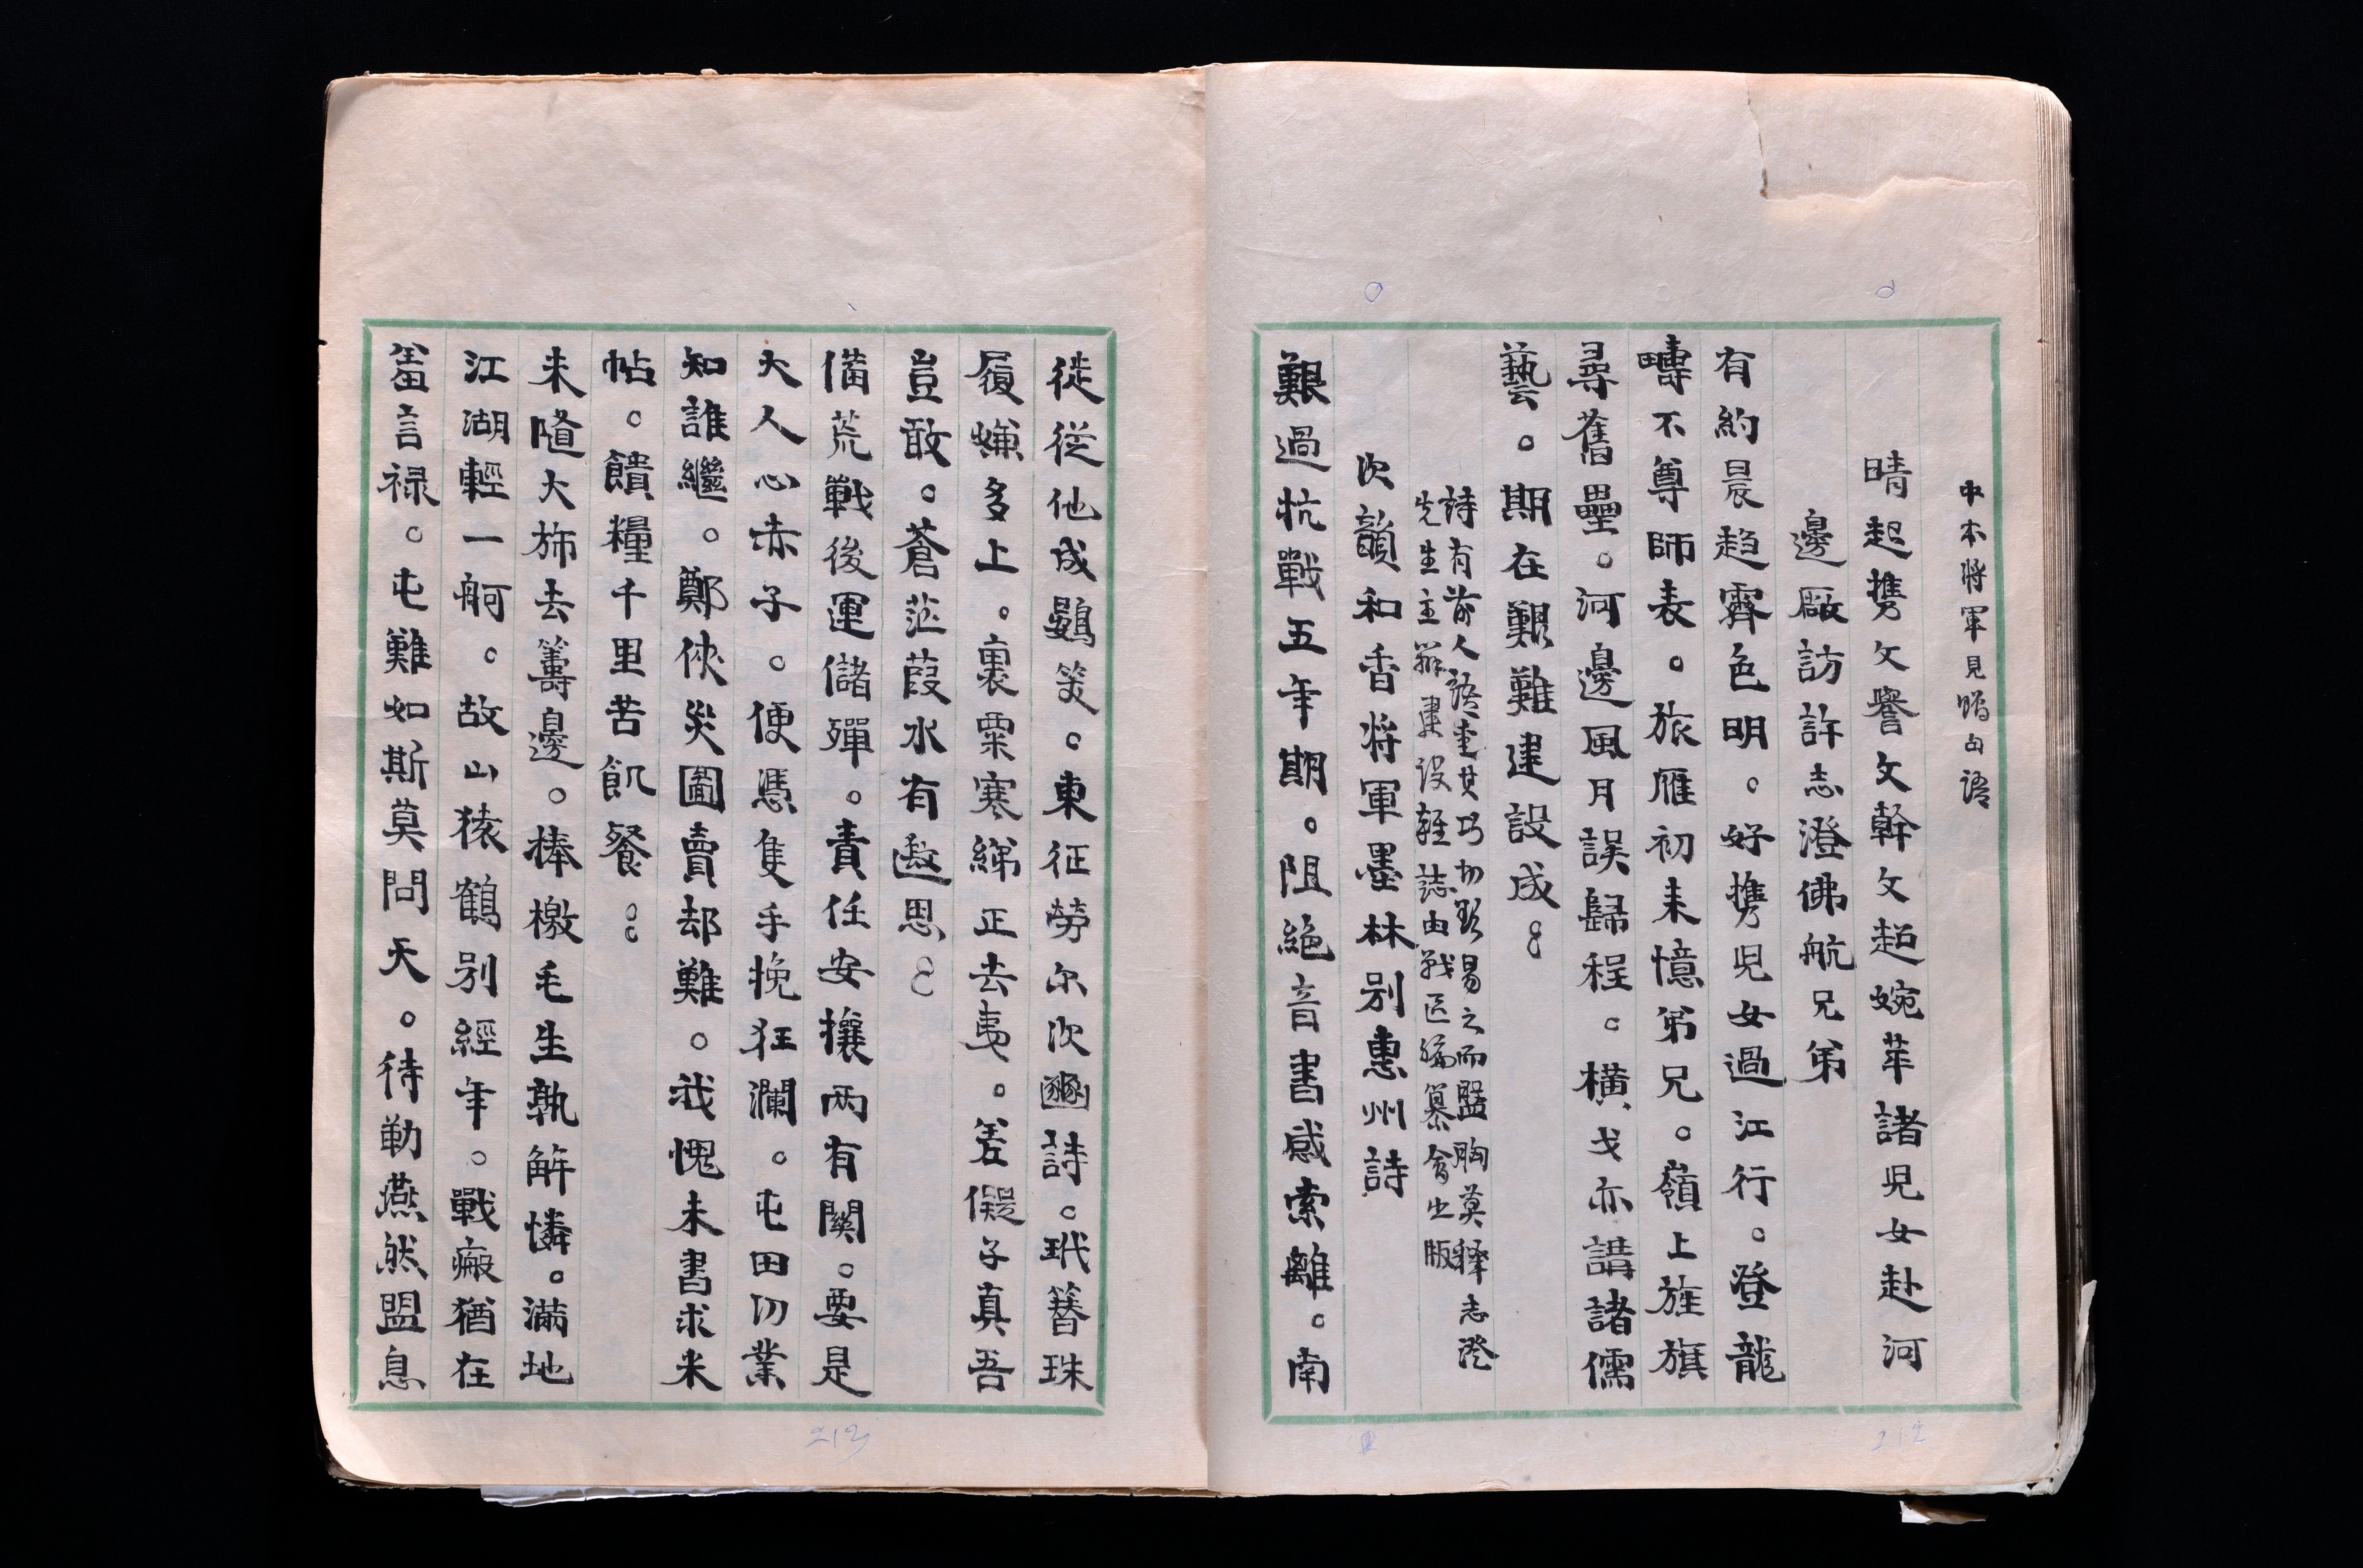 中本將軍見贈句語
晴起攜文譽文幹文超婉苹諸兒女赴河
邊廠訪許志澄佛航兄弟
有約晨趋霽色明。好攜兒女過江行。登龍
不尊師表。旅雁初来憶弟兄。嶺上旌旗
尋舊壘。河邊風月誤歸程。橫戈亦講諸儒
藝。期在艱難建設成。
詩有前人語查其巧切欲易之而盬胸莫釋志澄
先生主辦建設雜誌由戰區編纂會出版
次韻和香將軍墨林别惠州詩
艱過抗戰五年期。阻絕音書感索離。南
徙從他成鷃笑。東征勞尔次詩。玳簪珠
履嫌多上。裹粟寒綈正去夷。差儗子真吾
豈敢。蒼茫葭水有遐思。
備荒戰後運儲殫。責任安攘两有関。要是
大人心赤子。便憑隻手挽狂瀾。屯田仞業
知誰繼。鄭俠災圖賣却難。我愧未書求米
帖。饋糧千里苦飢餐。
未隨大斾去籌邊。棒檄毛生孰解憐。滿地
江湖輕一舸。故山猿鶴别經年。戰瘢猶在
羞言禄。屯難如斯莫問天。待勒燕然盟息
213
212